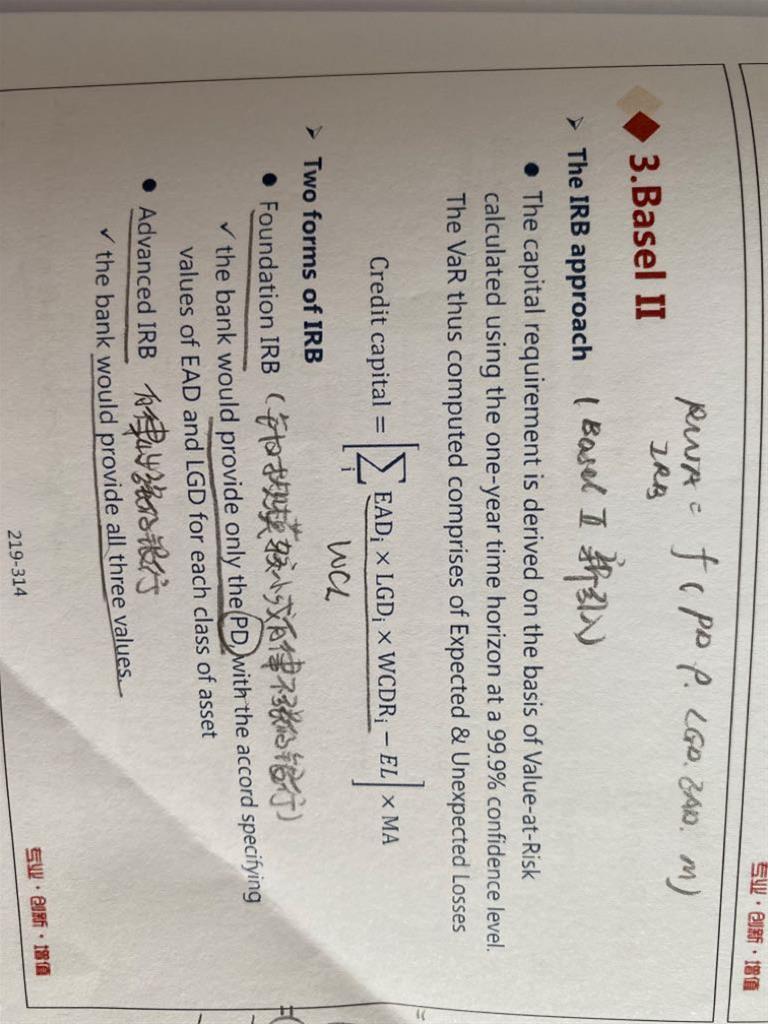 3.Basel II
RWA = f ( PD. ρ. LGD. EAD. M)
IRB
➢ The IRB approach ( Basel II 新引入)
● The capital requirement is derived on the basis of Value-at-Risk
calculated using the one-year time horizon at a 99.9% confidence level.
The VaR thus computed comprises of Expected & Unexpected Losses
Credit capital = [∑i EADᵢ × LGDᵢ × WCDRᵢ − EL] × MA
WCL
➢ Two forms of IRB
● Foundation IRB ( 较小或 不强的银行)
✓ the bank would provide only the PD, with the accord specifying
values of EAD and LGD for each class of asset
● Advanced IRB 的银行
✓ the bank would provide all three values.
219-314
专业·创新·增值
专业·创新·增值